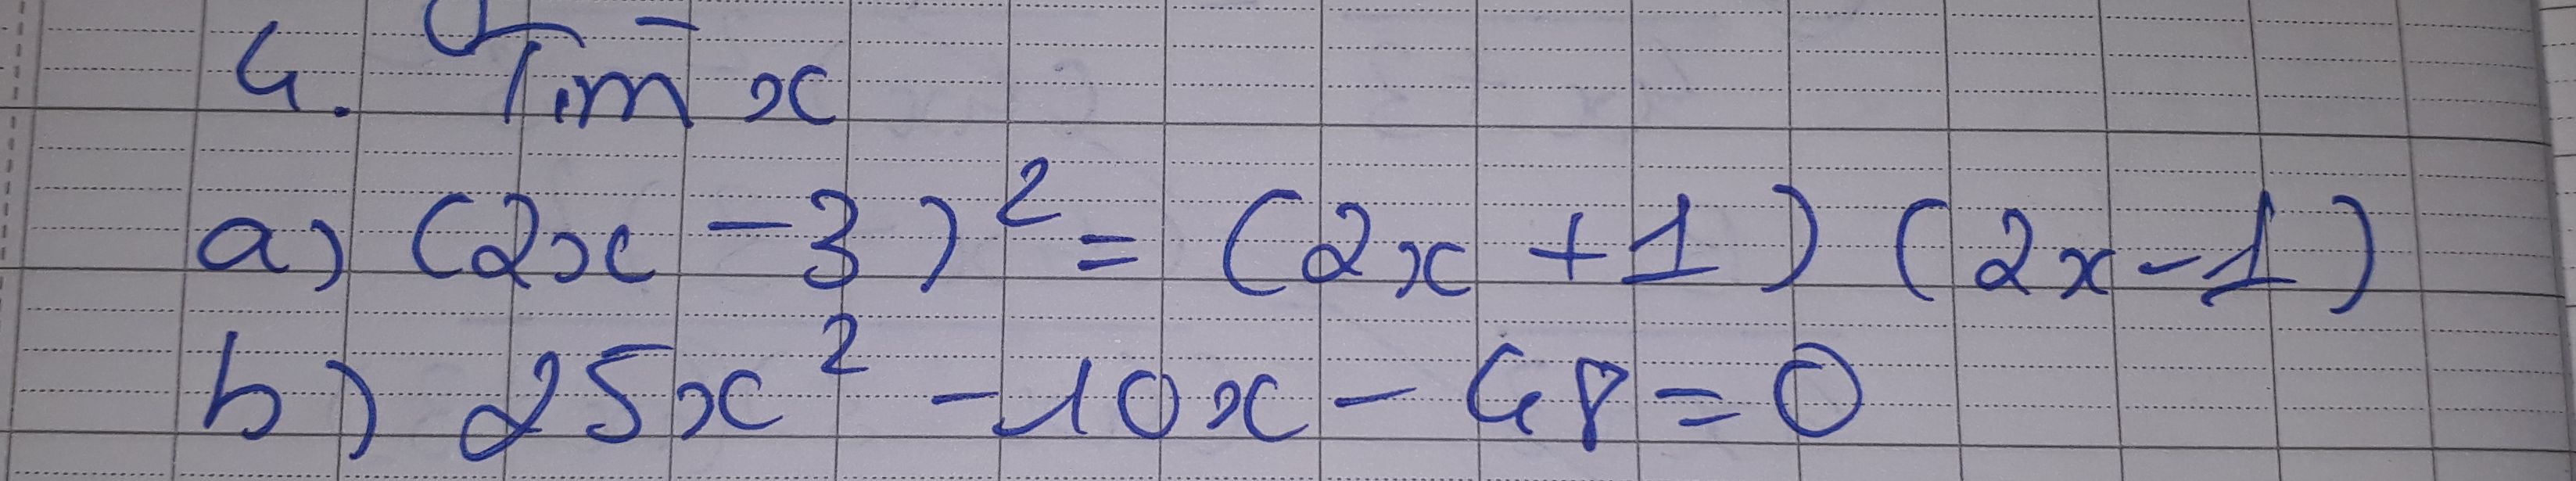 4. Tìm x
a) (2x - 3)² = (2x + 1) (2x - 1)
b) 25x² - 10x - 48 = 0